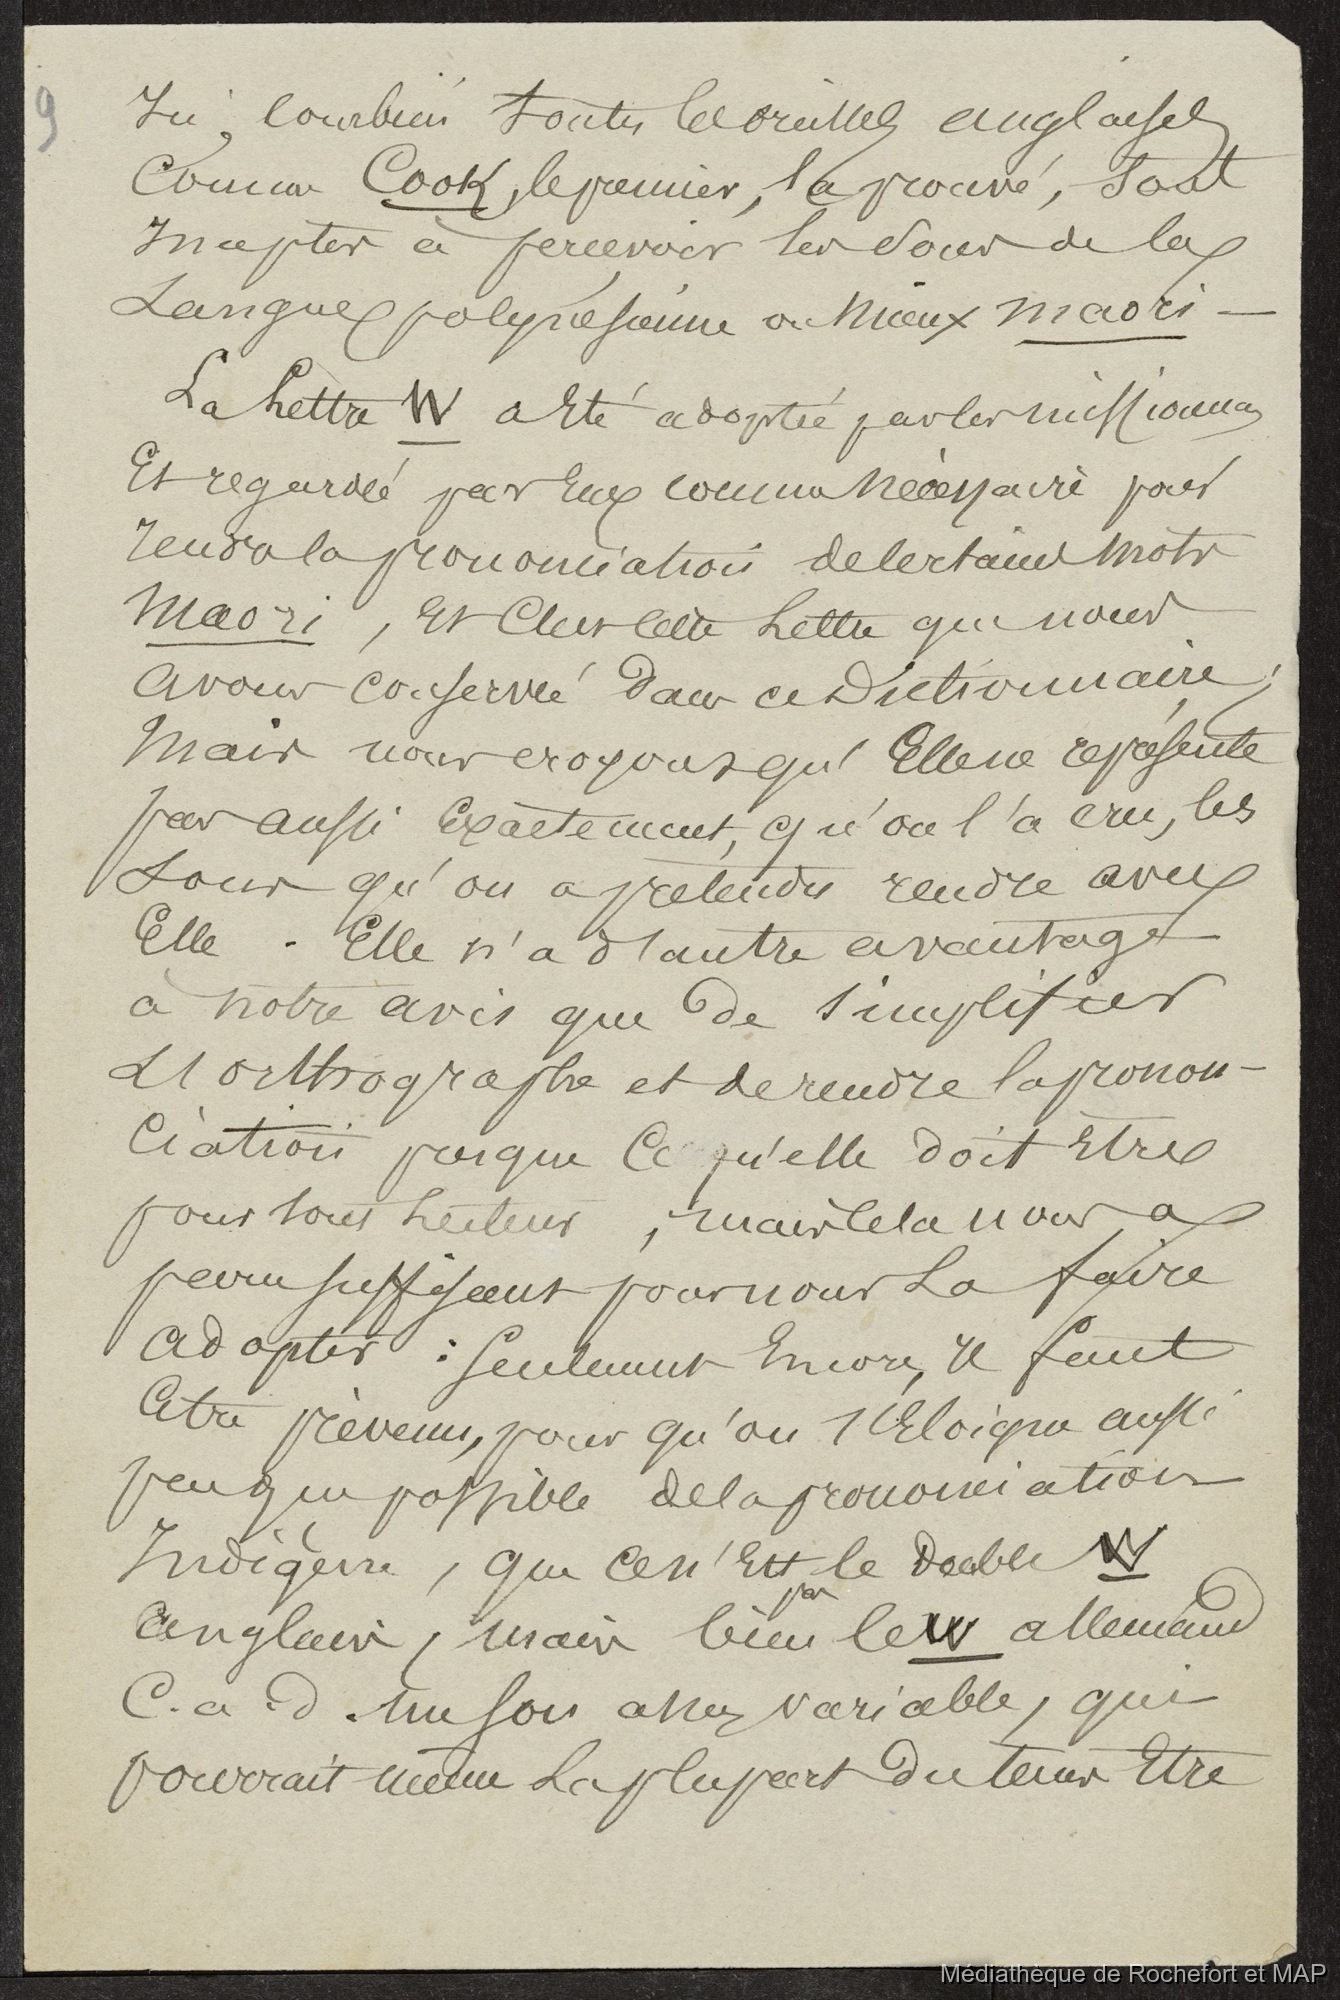 9
Ici, combien toutes les oreilles anglaises
comme Cook, le premier, l'a prouvé, sont
Inaptes à percevoir les sons de la
Langue polynésienne ou mieux maori —
La Lettre W a Eté adoptée par les missionnaires
Et regardée par Eux comme nécessaire pour
rendre la prononciation de certains mots
Maori, Et C'est cette Lettre que nous
avons conservée dans ce Dictionnaire;
Mais nous croyons qu'Elle ne représente
pas aussi Exactement, qu'on l'a cru, les
Sons qu'on a prétendu rendre avec
Elle. Elle n'a d'autre avantage
à notre avis que de simplifier
L'orthographe et de rendre la pronon-
ciation presque ce qu'elle doit Etre
pour tous Lecteurs, mais cela nous a
paru suffisant pour nous La faire
adopter : Seulement Encore, Il faut
Etre prévenu, pour qu'on s'Eloigne aussi
peu que possible de la prononciation
Indigène, que ce n'Est le double W
pas
anglais, mais bien le W allemand
C. a. d. Une son assez variable, qui
pourrait même La plupart du tems Etre
Médiathèque de Rochefort et MAP